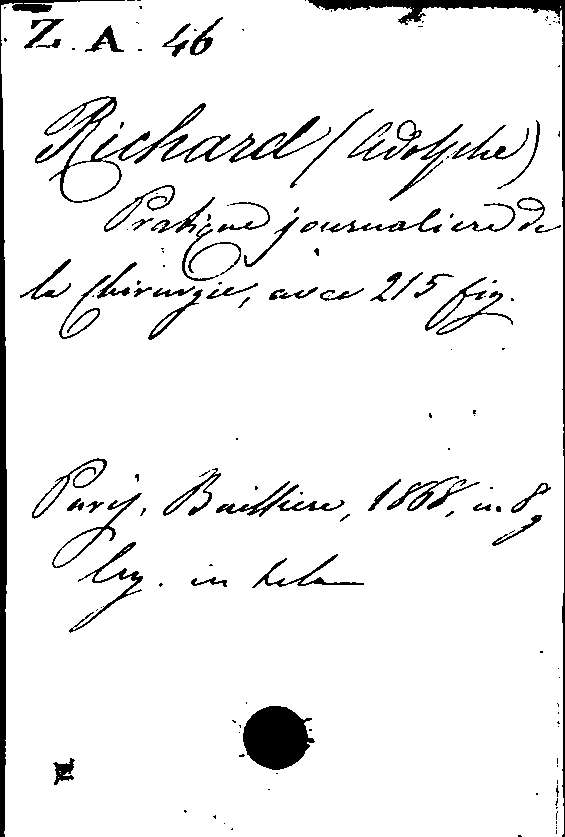 Z. A. 46
Richard (Adolphe)
Pratique journaliere de
la Chirurgie, avec 215 fig.
Paris, Bailliere, 1868, in 8,
leg. in tela